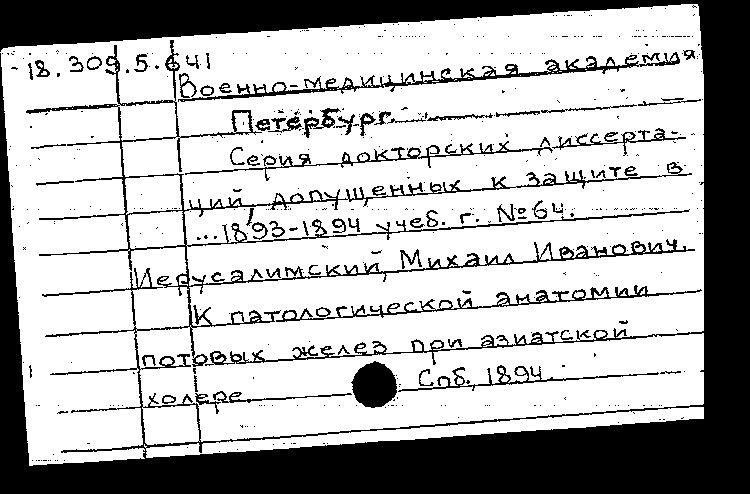 18.309.5.641
Военно-медицинская академия
Петербург.
Серия докторских диссерта-
ций, допущенных к защите в
...1893-1894 учеб. г. №64.
Иерусалимский, Михаил Иванович.
К патологической анатомии
потовых желез при азиатской
холере. Спб., 1894.